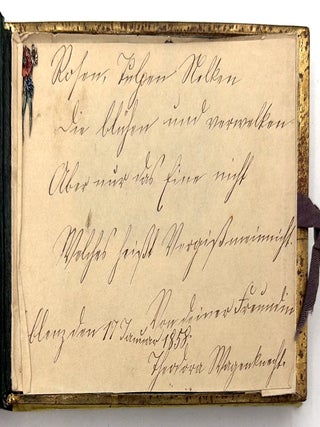 Rosen, Tulpen Nelken
Die bluhen und verwelken
Aber nur das Eine nicht
Welches heißt Vergißmeinnicht.
Von deiner Freundin
den 17 Januar 1858.
Theodora Wagenknecht.